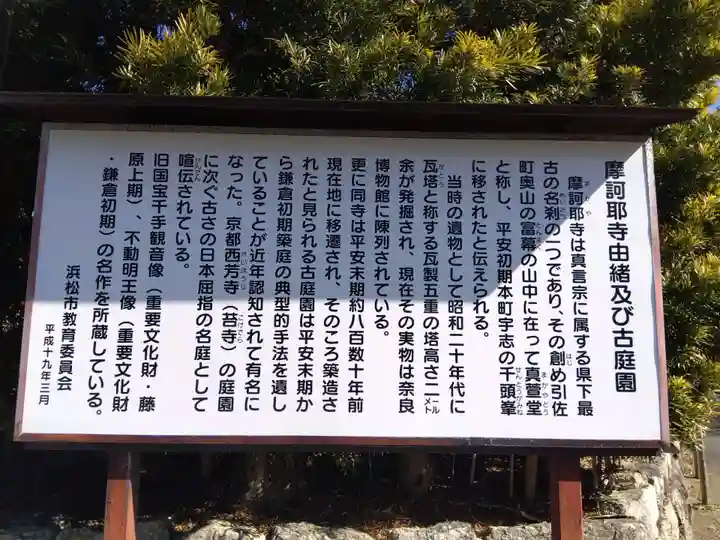 摩訶耶寺由緒及び古庭園
摩訶耶寺は真言宗に属する県下最
古の名刹の一つであり、その創め引佐
町奥山の富幕の山中に在って真萱堂
と称し、平安初期本町宇志の千頭峯
に移されたと伝えられる。
当時の遺物として昭和二十年代に
瓦塔と称する瓦製五重の塔高さ二メートル
余が発掘され、現在その実物は奈良
博物館に陳列されている。
更に同寺は平安末期約八百数十年前
現在地に移遷され、そのころ築造さ
れたと見られる古庭園は平安末期か
ら鎌倉初期築庭の典型的手法を遺し
ていることが近年認知されて有名に
なった。京都西芳寺（苔寺）の庭園
に次ぐ古さの日本屈指の名庭として
喧伝されている。
旧国宝千手観音像（重要文化財・藤
原上期）、不動明王像（重要文化財
・鎌倉初期）の名作を所蔵している。
浜松市教育委員会
平成十九年三月